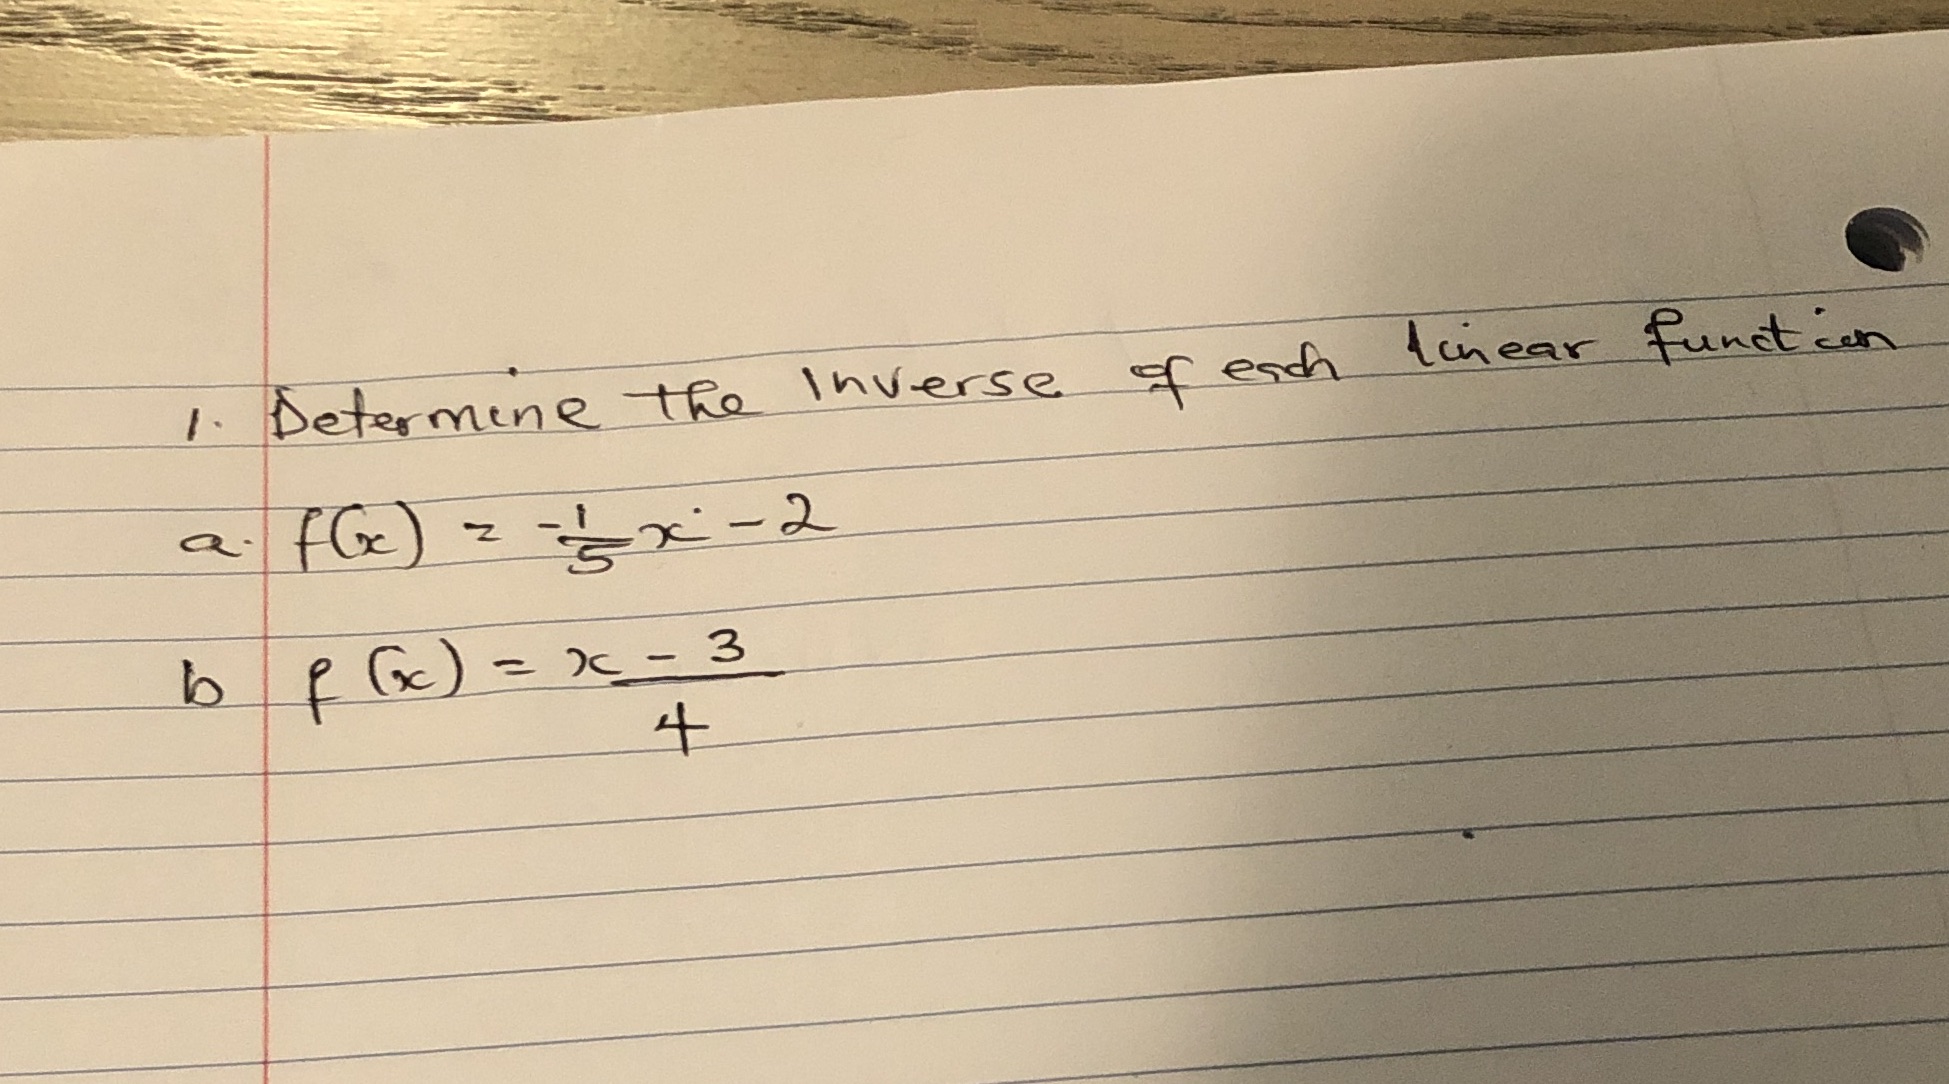 1. Determine the Inverse of each linear function
a. f(x) = -1/5 x - 2
b f(x) = x - 3 / 4